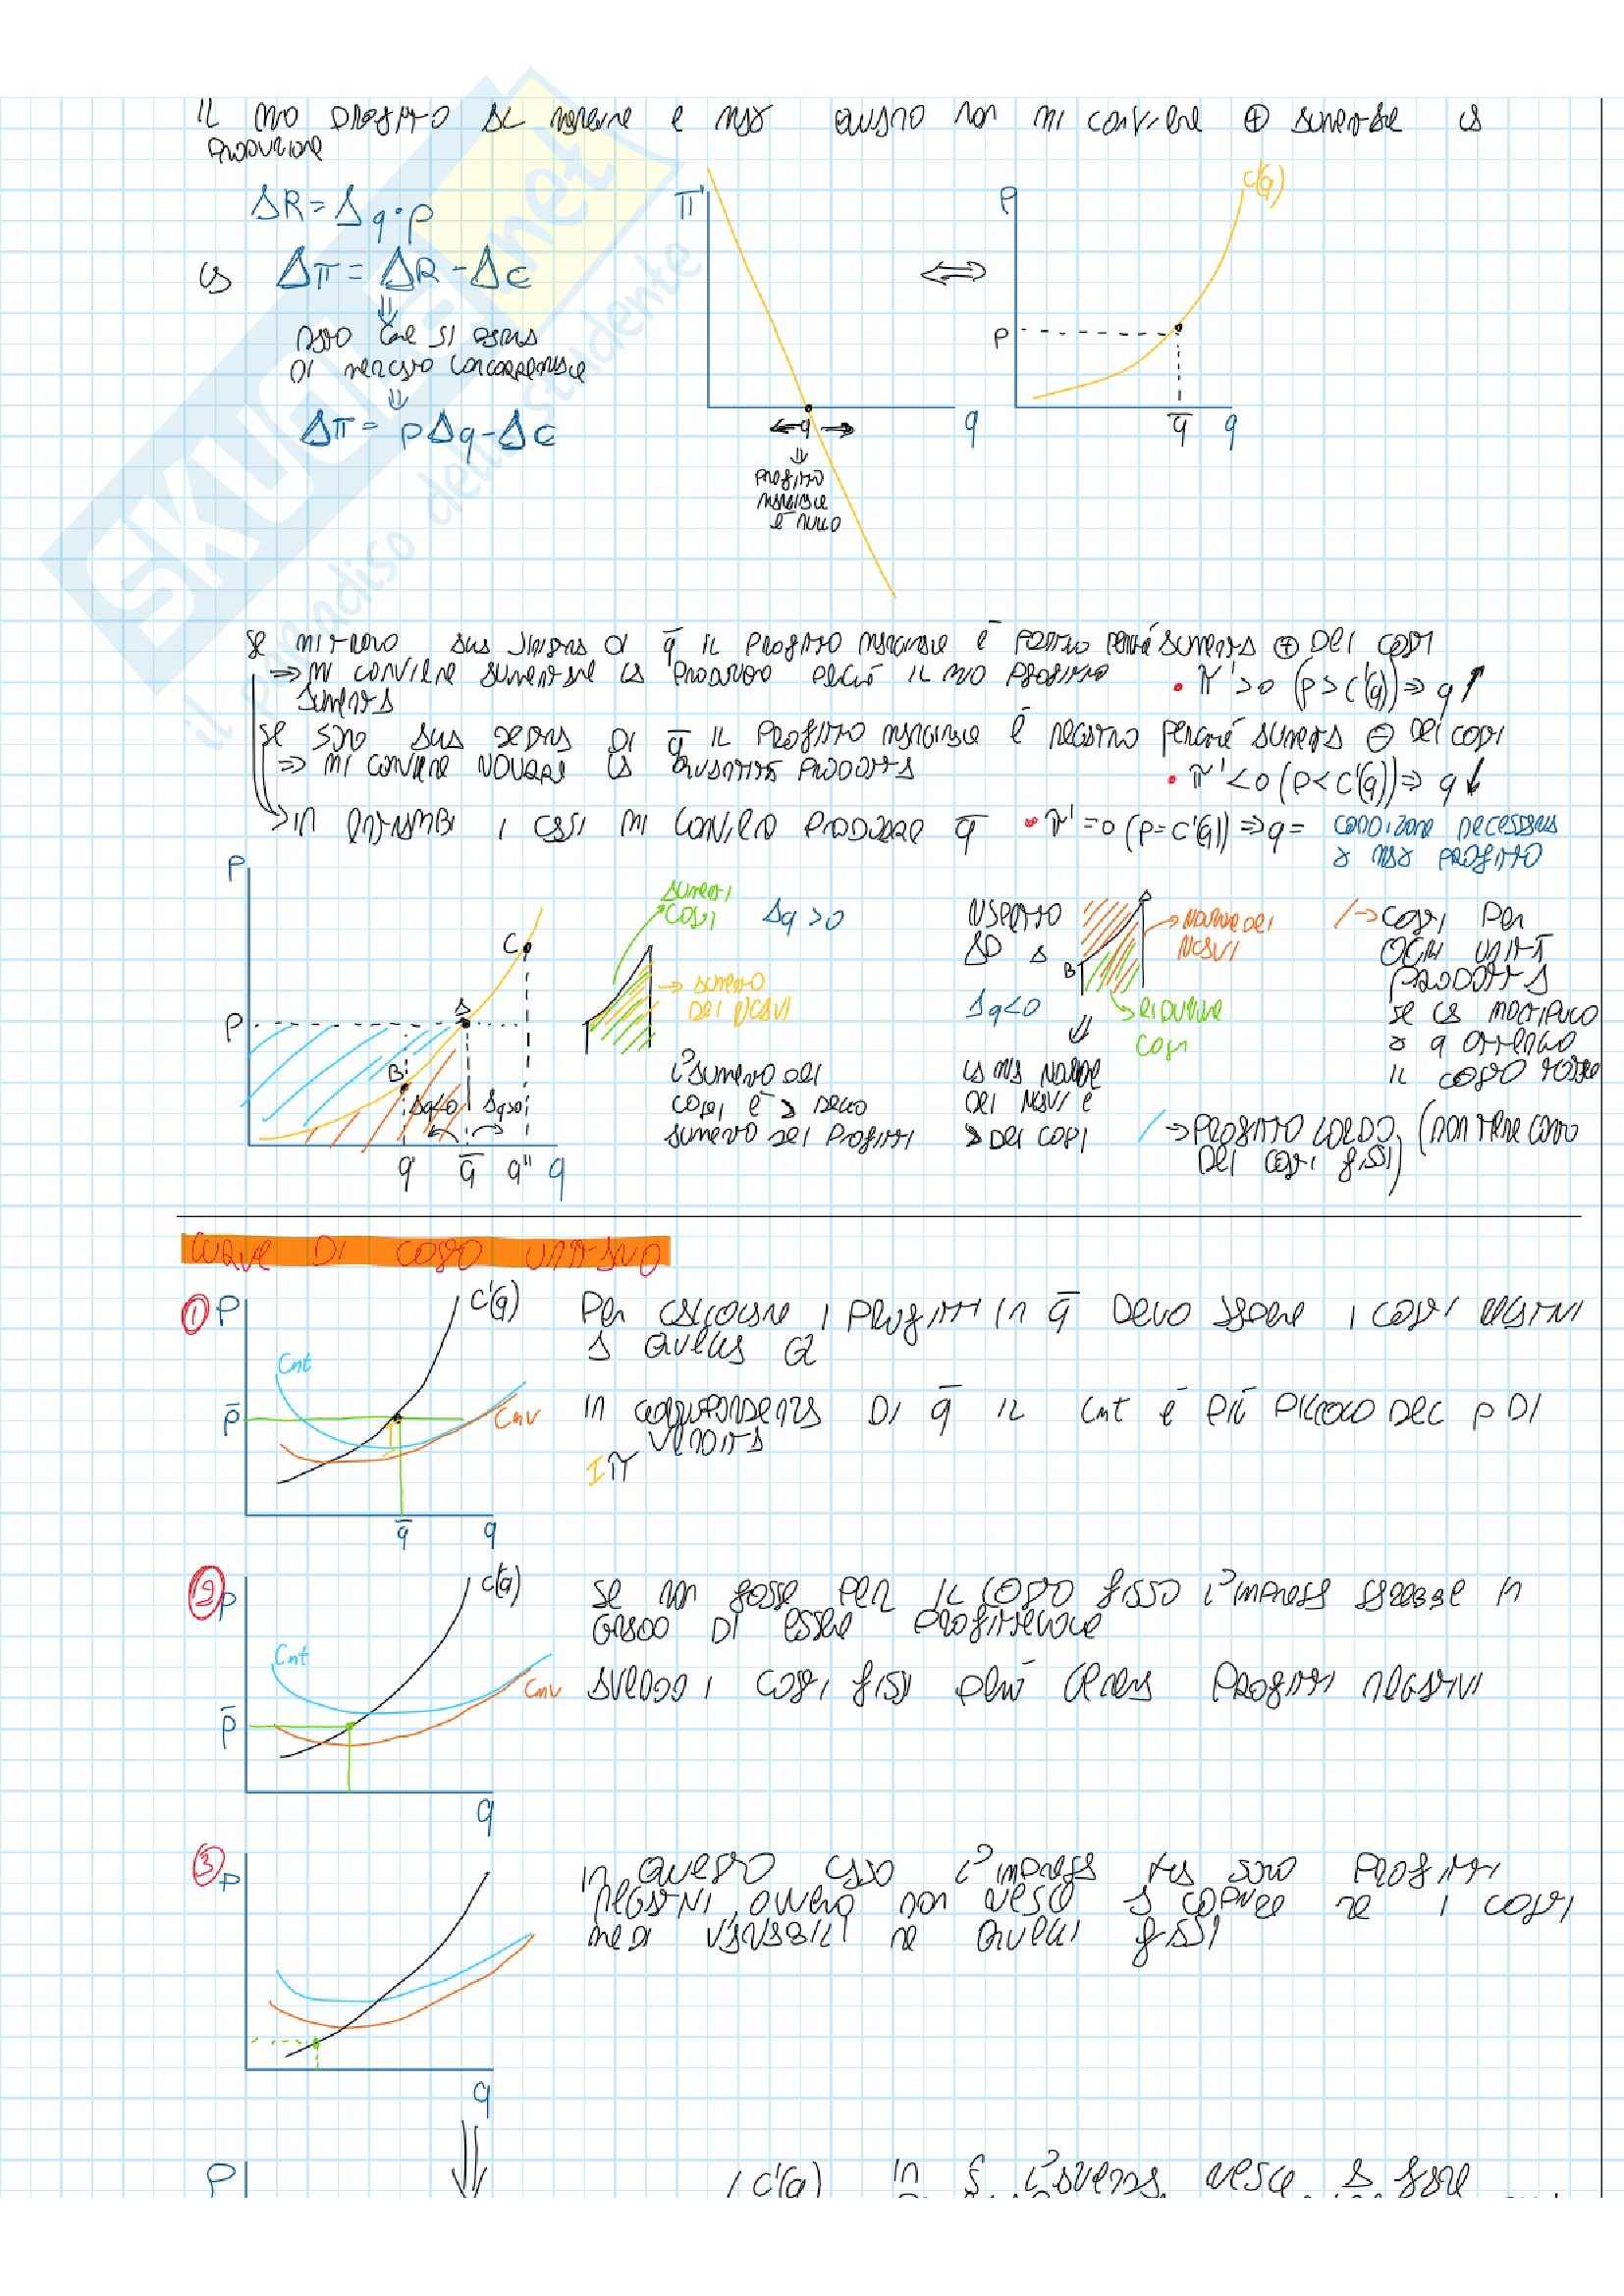 IL MIO PROFITTO AL MARGINE È MAX QUANDO NON MI CONVIENE ⊕ AUMENTARE LA
PRODUZIONE
ΔR = Δq·p
LA Δπ = ΔR - Δc
⇓
DATO CHE SI PARLA
DI MERCATO CONCORRENZIALE
⇓
Δπ = pΔq - Δc
π'
q
q
⇓
PROFITTO
MARGINALE
È NULLO
⇔
P
c'(q)
P
q̅
q
SE MI TROVO ALLA SINISTRA DI q̅ IL PROFITTO MARGINALE È POSITIVO PERCHÉ AUMENTA ⊕ DEI COSTI
⇒ MI CONVIENE AUMENTARE LA PRODUZIONE PERCHÉ IL MIO PROFITTO
AUMENTA
• π' > 0 (p > c'(q)) ⇒ q ↑
SE SONO ALLA DESTRA DI q̅ IL PROFITTO MARGINALE È NEGATIVO PERCHÉ AUMENTA ⊖ DEI COSTI
⇒ MI CONVIENE RIDURRE LA QUANTITÀ PRODOTTA
• π' < 0 (p < c'(q)) ⇒ q ↓
→ IN ENTRAMBI I CASI MI CONVIENE PRODURRE q̅ • π' = 0 (p = c'(q)) ⇒ q = CONDIZIONE NECESSARIA
X MAX PROFITTO
P
P
C
A
B
Δq<0
Δq>0
q'
q̅
q''
q
AUMENTI
COSTI
Δq > 0
→ AUMENTO
DEI RICAVI
L'AUMENTO DEI
COSTI È > DELLO
AUMENTO DEI PROFITTI
RISPETTO
AD A
Δq<0
⇓
B
→ RIDUZIONE DEI
RICAVI
→ RIDUZIONE
COSTI
LA RIDUZIONE
DEI RICAVI È
> DEI COSTI
/ → COSTI PER
OGNI UNITÀ
PRODOTTA
SE LA MOLTIPLICO
X q OTTENGO
IL COSTO TOTALE
/ → PROFITTO LORDO (NON TIENE CONTO
DEI COSTI FISSI)
CURVE DI COSTO UNITARIO
① P
c'(q)
Cmt
p̅
Cmv
q̅
q
PER CALCOLARE I PROFITTI IN q̅ DEVO SAPERE I COSTI RELATIVI
A QUELLA Q
IN CORRISPONDENZA DI q̅ IL Cmt È PIÙ PICCOLO DEL p DI
VENDITA
I π
② P
c'(q)
Cmt
p̅
Cmv
q
SE NON FOSSE PER IL COSTO FISSO L'IMPRESA SAREBBE IN
GRADO DI ESSERE PROFITTEVOLE
AVENDO I COSTI FISSI PERÒ GENERA PROFITTI NEGATIVI
③ P
q
IN QUESTO CASO L'IMPRESA HA SOLO PROFITTI
NEGATIVI, OVVERO NON RIESCO A COPRIRE NE I COSTI
MEDI VARIABILI NE QUELLI FISSI
⇓
P
c'(q)
IN S L'AZIENDA RIESCE A FARE
SKUOLA.net
il paradiso dello studente